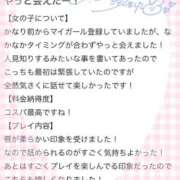 やっと会えたー！
【女の子について】
かなり前からマイガール登録していましたが、な
かなかタイミングが合わずやっと会えました！
人見知りするみたいな事を書いてあったので
こっちも最初は緊張していたのですが
全然気さくに話せて楽しかったです！
【料金納得度】
コスパ最高ですね！
【プレイ内容】
唇が柔らかい印象を受けました！
なので舐められるのがすごく気持ちよかった！
あとはすごくプレイを楽しんでる印象だったので
こっちも嬉しくなりました！